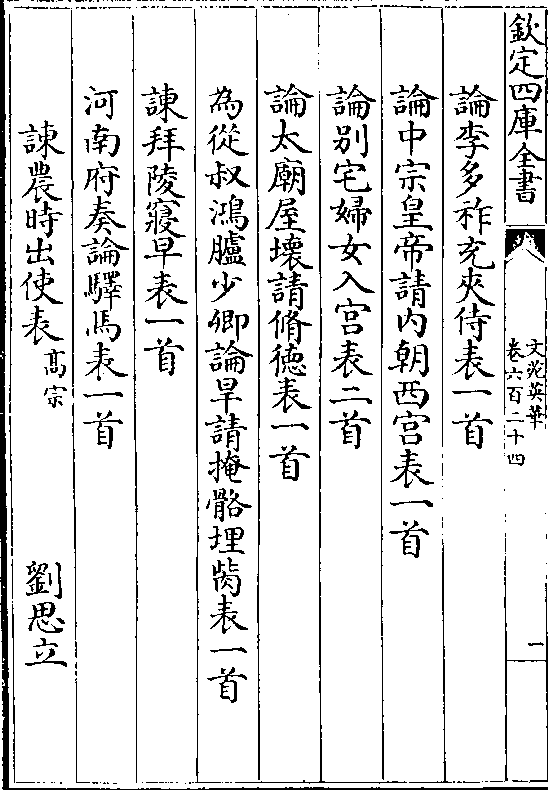 欽定四庫全書
文苑英華
卷六百二十四
一
論李多祚充夾侍表一首
論中宗皇帝請内朝西宫表一首
論别宅婦女入宫表二首
論太廟屋壊請脩徳表一首
為從叔鴻臚少卿論旱請掩骼埋胔表一首
諫拜陵寢早表一首
河南府奏論驛馬表一首
諫農時出使表 髙宗 劉思立